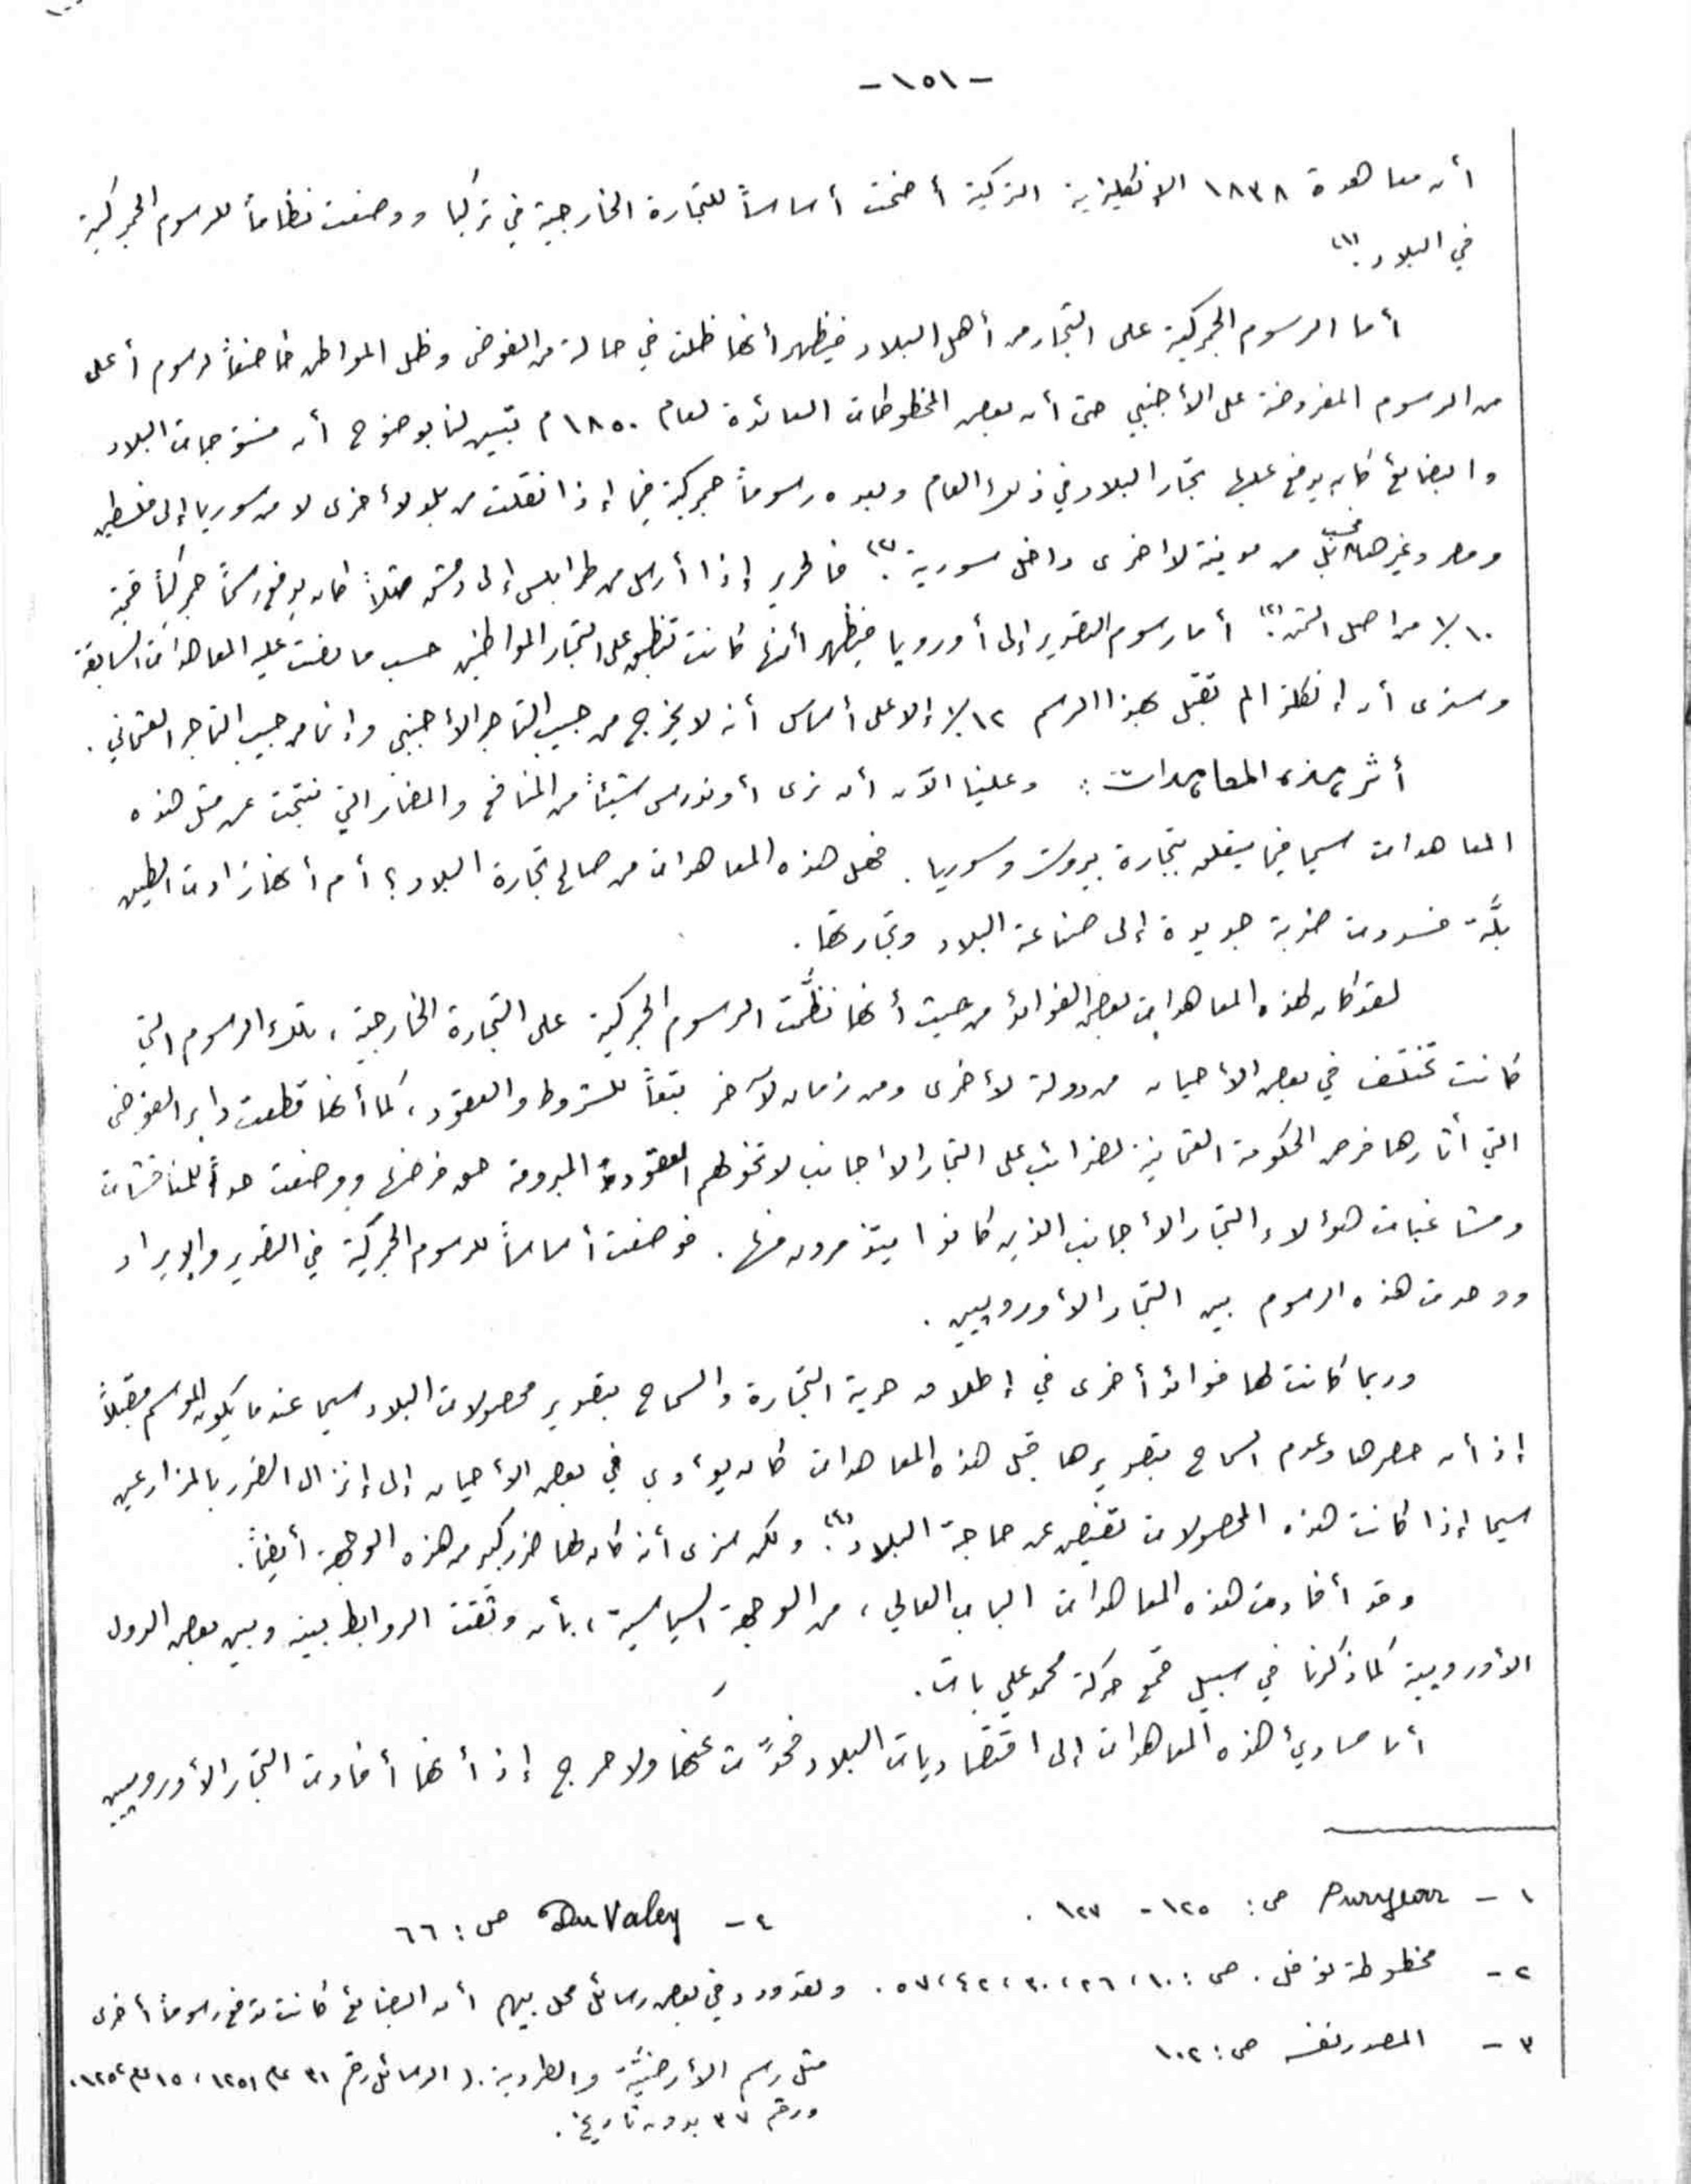 -١٥١-
أن معاهدة ١٨٣٨ الإنكليزية التركية أضحت أساساً للتجارة الخارجية في تركيا ووضعت نظاماً للرسوم الجمركية
في البلاد.(١)
أما الرسوم الجمركية على التجار من أهل البلاد فيظهر أنها ظلت في حالة من الفوضى وظل المواطن خاضعاً لرسوم أعلى
من الرسوم المفروضة على الأجنبي حتى أن بعض المخطوطات العائدة لعام ١٨٥٠م تبين لنا بوضوح أن منتوجات البلاد
والبضائع كان يدفع عليها تجار البلاد في ذلك العام وبعده رسوماً جمركية فيما إذا نقلت من بلد لأخرى لا من سوريا إلى فلسطين
ومصر وغيرها فحسب بل من مدينة لاخرى داخل سورية.(٢) فالحرير إذا أرسل من طرابلس إلى دمشق مثلاً كان يدفع رسماً جمركياً قيمته
١٠٪ من اصل الثمن.(٣) أما رسوم التصدير إلى أوروبا فيظهر أنها كانت تطبق على التجار المواطنين حسب ما نصت عليه المعاهدات السابقة
وسنرى أن إنكلترا لم تقبل بهذا الرسم ١٢٪ إلا على أساس أنه لا يخرج من جيب التاجر الأجنبي وإنما من جيب التاجر العثماني.
أثر هذه المعاهدات: وعلينا الآن أن نرى أو ندرس شيئاً من المنافع والمضار التي نتجت عن مثل هذه
المعاهدات سيما فيما يتعلق بتجارة بيروت وسوريا. فهل هذه المعاهدات من صالح تجارة البلاد؟ أم أنها زادت الطين
بلَّة فسددت ضربة جديدة إلى صناعة البلاد وتجارتها.
لقد كان لهذه المعاهدات بعض الفوائد من حيث أنها نظَّمت الرسوم الجمركية على التجارة الخارجية، تلك الرسوم التي
كانت تختلف في بعض الأحيان من دولة لأخرى ومن زمان لآخر تبعاً للشروط والعقود، كما أنها قطعت دابر الفوضى
التي أثارها فرض الحكومة العثمانية لضرائب على التجار الاجانب لا تخولهم العقود المبرومة حق فرضها ووضعت حداً للمناقشات
ومشاغبات هؤلاء التجار الأجانب الذين كانوا يتذمرون منها. فوضعت أساساً للرسوم الجمركية في التصدير والإيراد
ووحدت هذه الرسوم بين التجار الأوروبيين.
وربما كانت لها فوائد أخرى في إطلاق حرية التجارة والسماح بتصدير محصولات البلاد سيما عندما يكون الموسم مقبلاً
إذ أن حصرها وعدم السماح بتصديرها قبل هذه المعاهدات كان يؤدي في بعض الأحيان إلى إنزال الضرر بالمزارعين
سيما إذا كانت هذه المحصولات تفيض عن حاجة البلاد.(٤) ولكن سنرى أنه كان لها ضرر كبير من هذه الوجهة أيضاً.
وقد أفادت هذه المعاهدات الباب العالي، من الوجهة السياسية، بأن وثقت الروابط بينه وبين بعض الدول
الأوروبية كما ذكرنا في سبيل قمع حركة محمد علي باشا.
أما مساوئ هذه المعاهدات إلى اقتصاديات البلاد فحدّث عنها ولا حرج إذ أنها أفادت التجار الأوروبيين
١- Puryear ص: ١٢٥-١٢٧.
٤- Du Valey ص: ٦٦
٢- مخطوطة نوفل. ص: ١٠، ٢٦، ٣٠، ٤٢، ٥٧. ولقد ورد في بعض رسائل محل بيهم أن البضائع كانت تدفع رسوماً أخرى
مثل رسم الأرضيَّة والطردية. (الرسائل رقم ٣١ عام ١٢٥١، ١٥ عام ١٢٥٢،
ورقم ٣٧ بدون تاريخ.
٣- المصدر نفسه ص: ١٠٢